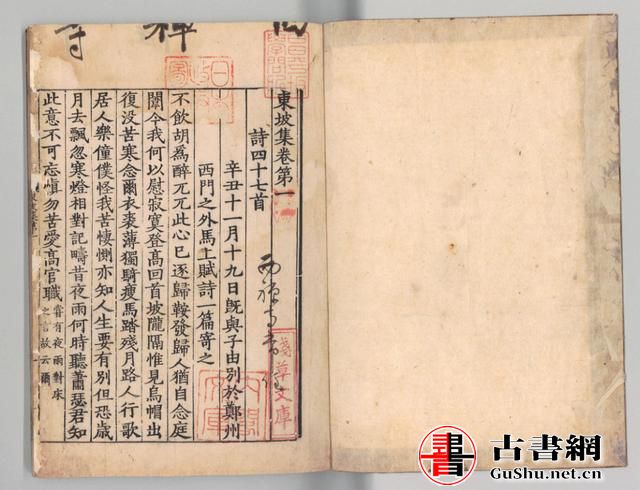 東坡集卷第一
詩四十七首
辛丑十一月十九日旣與子由別於鄭州
西門之外馬上賦詩一篇寄之
不飲胡爲醉兀兀此心已逐歸鞍發歸人猶自念庭
闈今我何以慰寂寞登高回首坡隴隔惟見烏帽出
復没苦寒念爾衣裘薄獨騎瘦馬踏殘月路人行歌
居人樂僮僕怪我苦悽惻亦知人生要有別但恐歲
月去飄忽寒燈相對記疇昔夜雨何時聽蕭瑟君知
此意不可忘愼勿苦愛高官職
嘗有夜雨對床
之言故云爾
淺草文庫
禅
寺
書
古書網
GuShu.net.cn